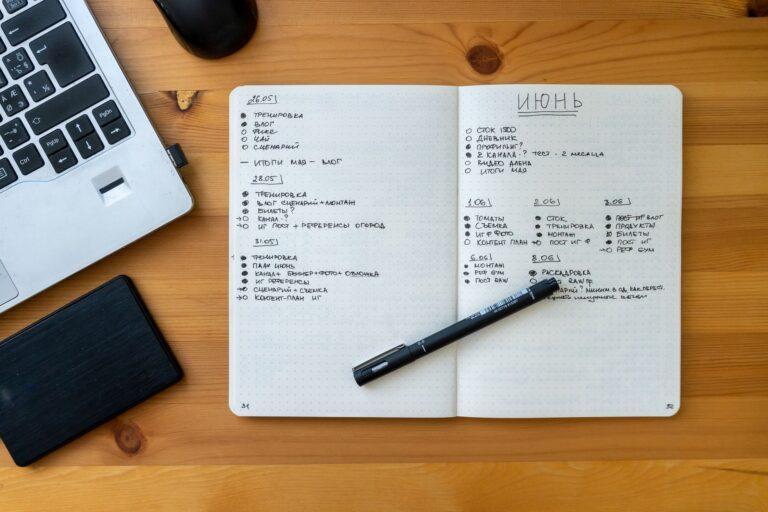 26.05
ТРЕНИРОВКА
ВЛОГ
ФИКС
ЧАЙ
СЦЕНАРИЙ
— ИТОГИ МАЯ — ВЛОГ
28.05
ТРЕНИРОВКА
ВЛОГ СЦЕНАРИЙ + МОНТАЖ
БИЛЕТЫ?
КАНАЛ-?
ИГ ПОСТ + РЕФЕРЕНСЫ ОГОРОД
31.05
ТРЕНИРОВКА
ПЛАН ИЮНЬ
КАНАЛ + БАННЕР + ФОТО + ОБЛОЖКА
ИГ РЕФЕРЕНСЫ
СЦЕНАРИЙ + СЪЕМКА
КОНТЕНТ-ПЛАН ИГ
31
ИЮНЬ
СТОК 1300
ДНЕВНИК
ПРОФИЛЬ ИГ?
2 КАНАЛА-? ТЕСТ - 2 МЕСЯЦА
ВИДЕО ДЛЕНА
ИТОГИ МАЯ
1.06
ТОМАТЫ
СЪЕМКА
ИГ ФОТО
КОНТЕНТ ПЛАН
2.06
СТОК
ТРЕНИРОВКА
МОНТАЖ
ПОСТ ИГ Ф
3.06
ВЛОГ
ПРОДУКТЫ
БИЛЕТЫ
ПОСТ ИГ
РЕФ GYM
6.06
МОНТАЖ
РЕФ GYM
ПОСТ RAW
8.06
РАСКАДРОВКА
RAW
PgUp
PgDn
Ctrl